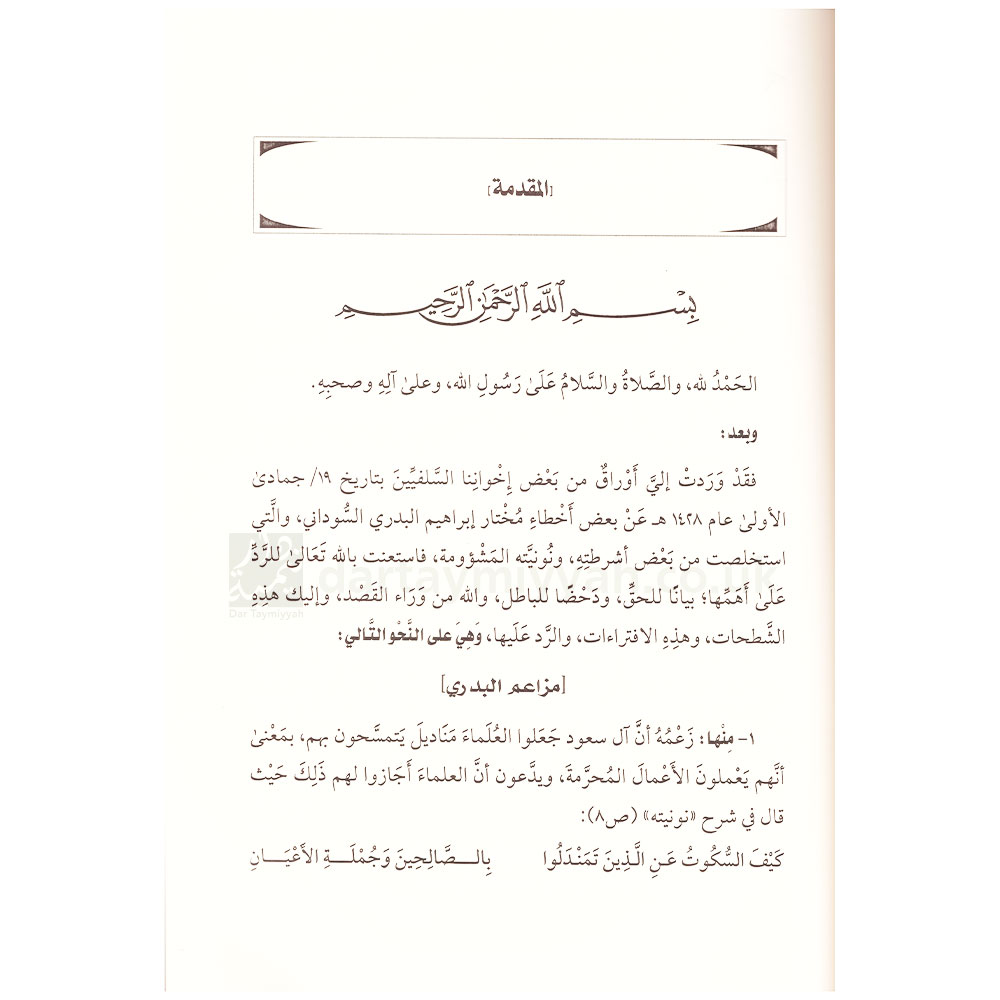 [المقدمة]
بِسْمِ اللَّهِ الرَّحْمَنِ الرَّحِيمِ
الحَمْدُ لله، والصَّلاةُ والسَّلامُ عَلَىٰ رَسُولِ الله، وعلىٰ آلِهِ وصحبِهِ.
وبعد:
فقَدْ وَرَدتْ إليَّ أَوْرَاقٌ من بَعْض إِخْوانِنا السَّلفيِّينَ بتاريخ ١٩/ جمادىٰ
الأولىٰ عام ١٤٢٨ هـ عَنْ بعض أَخْطاءِ مُخْتار إبراهيم البدري السُّوداني، والَّتي
استخلصت من بَعْض أشرطتِهِ، ونُونيَّته المَشْؤومة، فاستعنت بالله تَعَالىٰ للرَّدِّ
عَلَىٰ أَهَمِّها؛ بيانًا للحقِّ، ودَحْضًا للباطل، والله من وَرَاء القَصْد، وإليك هذِهِ
الشَّطحات، وهذِهِ الافتراءات، والرَّد عَلَيها، وَهِيَ على النَّحْو التَّالي:
[مزاعم البدري]
١- مِنْها: زَعْمُهُ أنَّ آل سعود جَعَلوا العُلَماءَ مَنَاديلَ يَتمسَّحون بهم، بمَعْنىٰ
أنَّهم يَعْملونَ الأَعْمالَ المُحرَّمةَ، ويدَّعون أنَّ العلماءَ أجَازوا لهم ذَلِكَ حَيْث
قال في شرح «نونيته» (ص٨):
كَيْفَ السُّكُوتُ عَنِ الَّذِينَ تَمَنْدَلُوا بِالصَّالِحِينَ وَجُمْلَةِ الأَعْيَانِ
dartaymiyyah.co.uk
Dar Taymiyyah